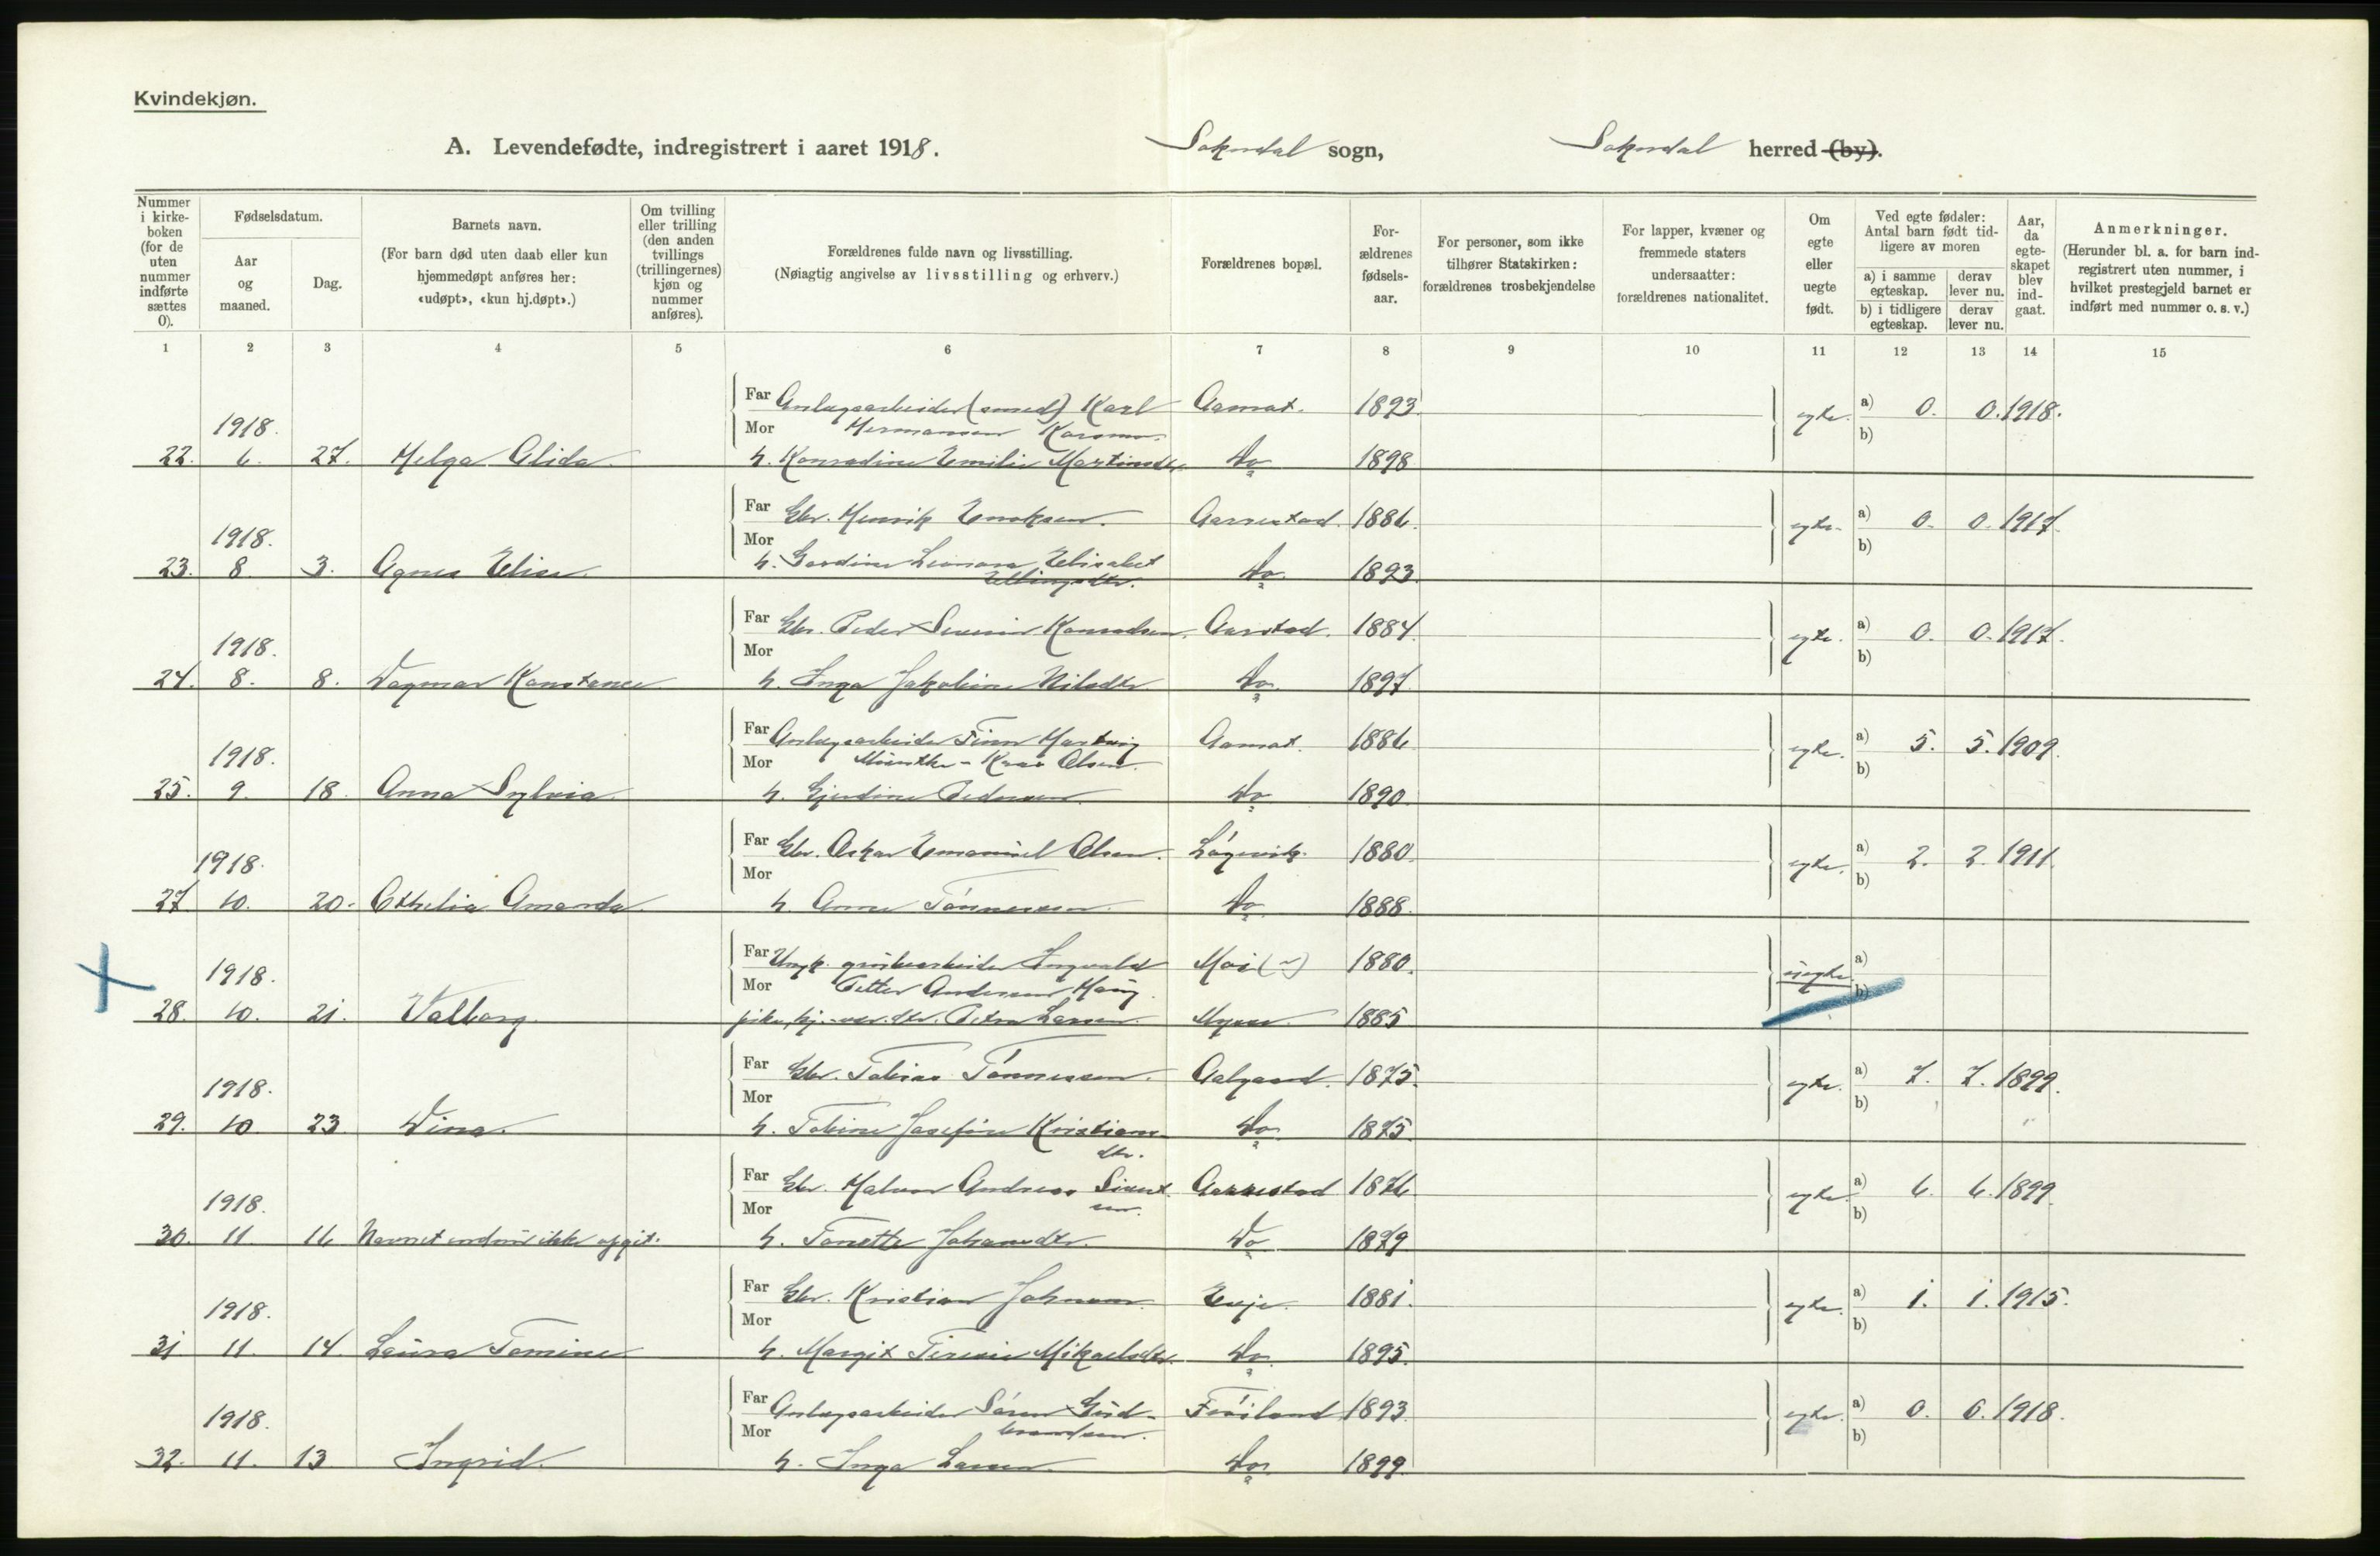 Kvindekjøn.
A. Levendefødte, indregistrert i aaret 1918. Sokndal sogn, Sokndal herred (by).
Nummer i kirkeboken (for de uten nummer indførte sættes 0).
Fødselsdatum.
Aar og maaned.
Dag.
Barnets navn.
(For barn død uten daab eller kun hjemmedøpt anføres her: «udøpt», «kun hj.døpt».)
Om tvilling eller trilling (den anden tvillings (trillingernes) kjøn og nummer anføres).
Forældrenes fulde navn og livsstilling.
(Nøiagtig angivelse av livsstilling og erhverv.)
Forældrenes bopæl.
Forældrenes fødselsaar.
For personer, som ikke tilhører Statskirken: forældrenes trosbekjendelse
For lapper, kvæner og fremmede staters undersaatter: forældrenes nationalitet.
Om egte eller uegte født.
Ved egte fødsler: Antal barn født tidligere av moren
a) i samme egteskap. derav lever nu.
b) i tidligere egteskap. derav lever nu.
Aar, da egteskapet blev indgaat.
Anmerkninger.
(Herunder bl. a. for barn indregistrert uten nummer, i hvilket prestegjeld barnet er indført med nummer o. s. v.)
1 2 3 4 5 6 7 8 9 10 11 12 13 14 15
Far Anlægsarbeider (smed) Karl Aamot. 1893. egte. a) 0. 0. 1918.
1918. Mor Hermansen b)
22. 6. 27. Helga Alida. h. Konradine Emilie Martinsdtr. Do 1898
Far Gbr. Henrik Enoksen. Aarrestad. 1886. egte. a) 0. 0. 1917.
1918. Mor b)
23. 8. 3. Agnes Elise. h. Leonora Elisabet Do. 1893.
Ellingsdtr.
Far Gbr. Peder Severin Konradsen. Aarstad. 1884. egte. a) 0. 0. 1917.
1918. Mor b)
24. 8. 8. Dagmar Konstance h. Inga Jakobine Nilsdtr. Do. 1897.
Far Anlægsarbeider Finn Hartvig Aamot. 1886. egte. a) 5. 5. 1909.
1918. Mor Olsen. b)
25. 9. 18. Anna Sylvia. h. Gjerdine Pedersen. Do 1890.
Far Gbr. Oskar Emanuel Olsen. Løgevik. 1880. egte. a) 2. 2. 1911.
1918. Mor b)
27. 10. 20. Othelia Amanda. h. Anne Tønnessen. Do. 1888.
Far Ungk. grubearbeider Ingvald Moi 1880. uegte. a)
1918. Mor Petter Andersen b)
28. 10. 21. Valborg. pike, Petra Larsen. 1885
Far Gbr. Tobias Tønnessen. Aalgaard. 1875. egte. a) 7. 7. 1899.
1918. Mor b)
29. 10. 23 Dina. h. Tobine Josefine Kristians- Do. 1875.
dtr.
Far Gbr. Halvor Andreas Sivert- Aarrestad 1876. egte. a) 6. 6. 1899.
1918. Mor sen. b)
30. 11. 11. Navnet endnu ikke opgit. h. Tonette Johansdtr. Do 1879.
Far Gbr. Kristian Johnsen. Eeje. 1881. egte. a) 1. 1. 1915.
1918. Mor b)
31 11. 14. Laura Tomine h. Margit Mikaelsdtr. Do. 1895.
Far Anlægsarbeider Søren Gud- Frøiland 1893. egte. a) 0. 0. 1918.
1918. Mor brandsen. b)
32. 11. 13 Ingrid. h. Inga Larsen. Do. 1899.